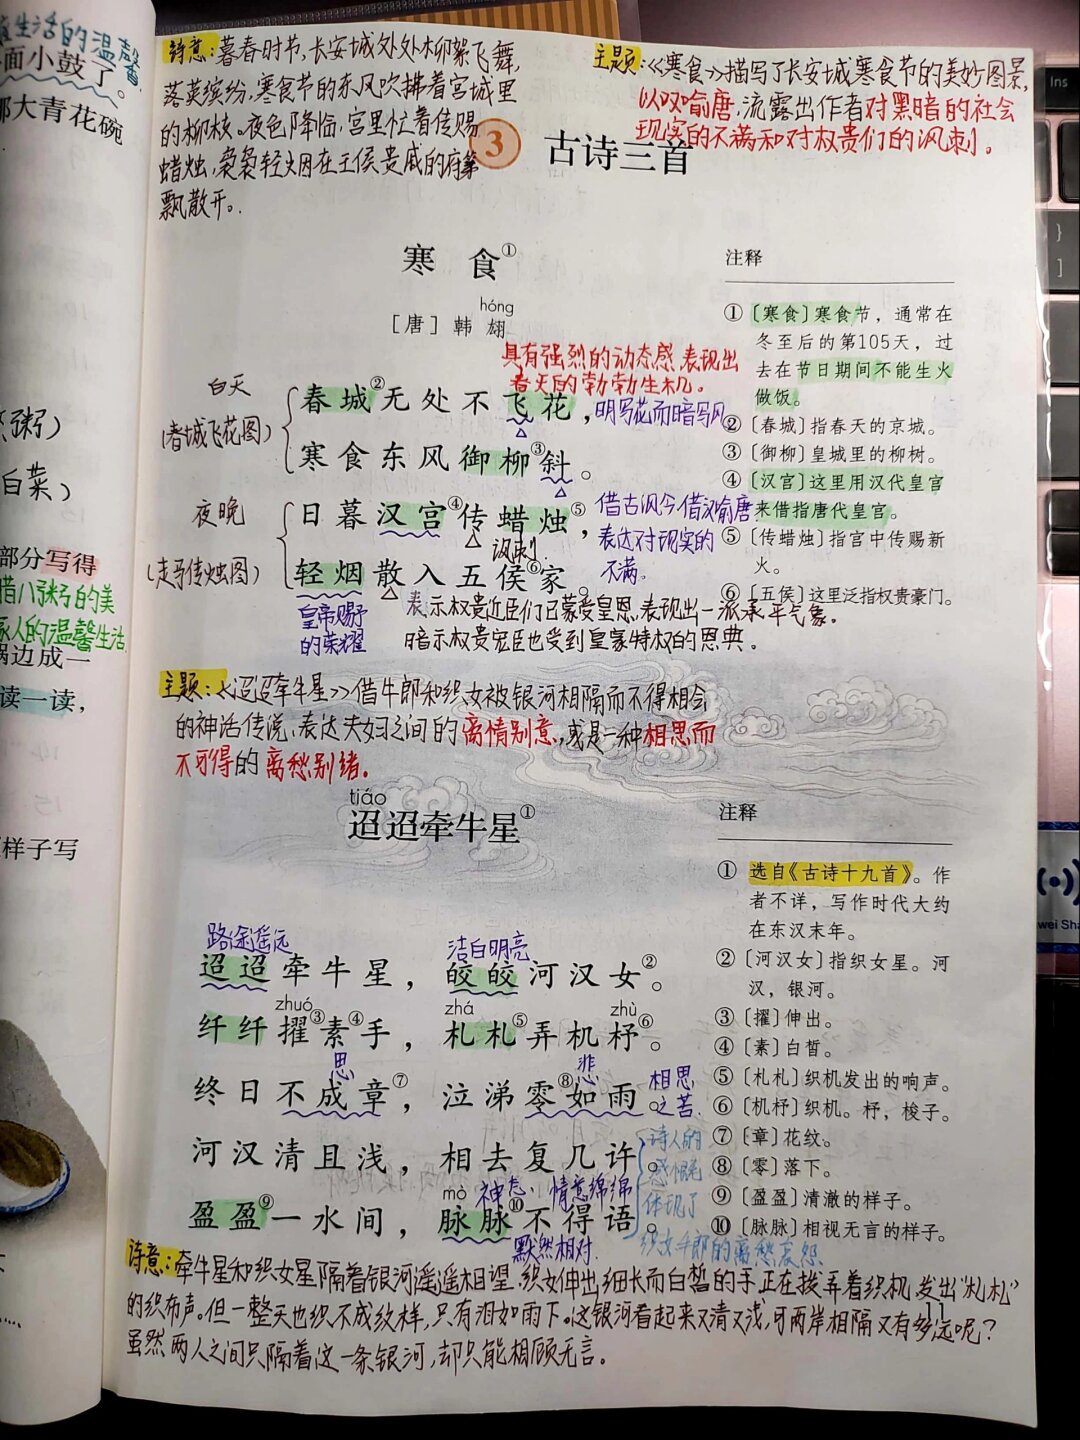 生活的温馨
面小鼓了。
那大青花碗
粥)
白菜)
部分写得
腊八粥的美
家人的温馨生活
锅边成一
读一读，
样子写
诗意：暮春时节，长安城处处柳絮飞舞，
落英缤纷，寒食节的东风吹拂着宫城里
的柳枝。夜色降临，宫里忙着传赐
蜡烛，袅袅轻烟在王侯贵戚的府第
飘散开。
主题：《寒食》描写了长安城寒食节的美妙图景，
以汉喻唐，流露出作者对黑暗的社会
现实的不满和对权贵们的讽刺。
3 古诗三首
寒食①
hóng
[唐] 韩翃
具有强烈的动态感，表现出
春天的勃勃生机。
白天
(春城飞花图)
春城②无处不飞花，
明写花而暗写风
寒食东风御柳③斜。
夜晚
(走马传烛图)
日暮汉宫④传蜡烛⑤，
借古讽今借汉喻唐
表达对现实的
不满。
讽刺
轻烟散入五侯⑥家。
皇帝赐予
的荣耀
表示权贵近臣们已蒙受皇恩，表现出一派承平气象。
暗示权贵宠臣也受到皇家特权的恩典。
注释
①〔寒食〕寒食节，通常在
冬至后的第105天，过
去在节日期间不能生火
做饭。
②〔春城〕指春天的京城。
③〔御柳〕皇城里的柳树。
④〔汉宫〕这里用汉代皇宫
来借指唐代皇宫。
⑤〔传蜡烛〕指宫中传赐新
火。
⑥〔五侯〕这里泛指权贵豪门。
主题：《迢迢牵牛星》借牛郎和织女被银河相隔而不得相会
的神话传说，表达夫妇之间的离情别意，或是一种相思而
不可得的离愁别绪。
tiáo
迢迢牵牛星①
路途遥远
洁白明亮
迢迢牵牛星，皎皎河汉女②。
zhuó zhá zhù
纤纤擢③素④手，札札⑤弄机杼⑥。
思
悲
终日不成章⑦，泣涕零⑧如雨。
相思
之苦
河汉清且浅，相去复几许。
mò
神态、情意绵绵
盈盈⑨一水间，脉脉⑩不得语。
默然相对
诗人的
感慨
体现了
织女牛郎的离愁哀怨
注释
①选自《古诗十九首》。作
者不详，写作时代大约
在东汉末年。
②〔河汉女〕指织女星。河
汉，银河。
③〔擢〕伸出。
④〔素〕白皙。
⑤〔札札〕织机发出的响声。
⑥〔机杼〕织机。杼，梭子。
⑦〔章〕花纹。
⑧〔零〕落下。
⑨〔盈盈〕清澈的样子。
⑩〔脉脉〕相视无言的样子。
诗意：牵牛星和织女星隔着银河遥遥相望，织女伸出细长而白皙的手正在拨弄着织机，发出“札札”
的织布声。但一整天也织不成纹样，只有泪如雨下。这银河看起来又清又浅，可两岸相隔又有多远呢？
虽然两人之间只隔着这一条银河，却只能相顾无言。
11
Ins
wei Sha